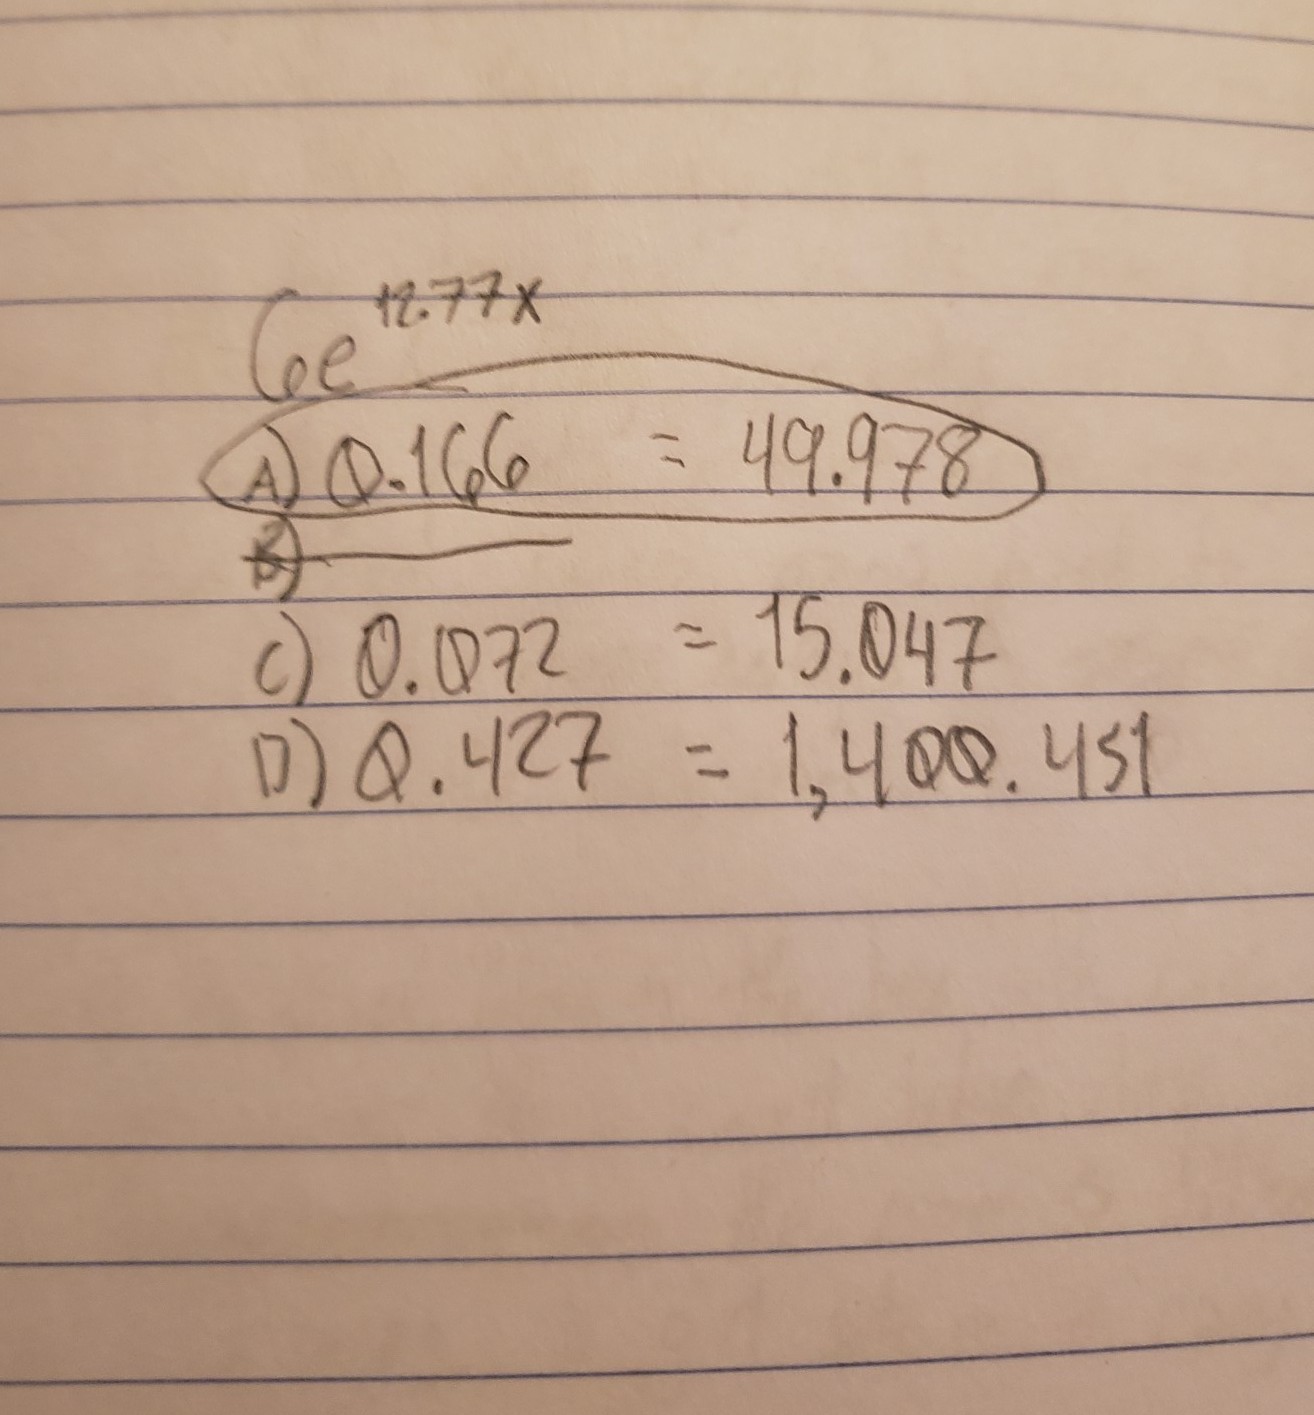 6e^12.77x
A) 0.166 = 49.978
B)
C) 0.072 = 15.047
D) 0.427 = 1,400.451